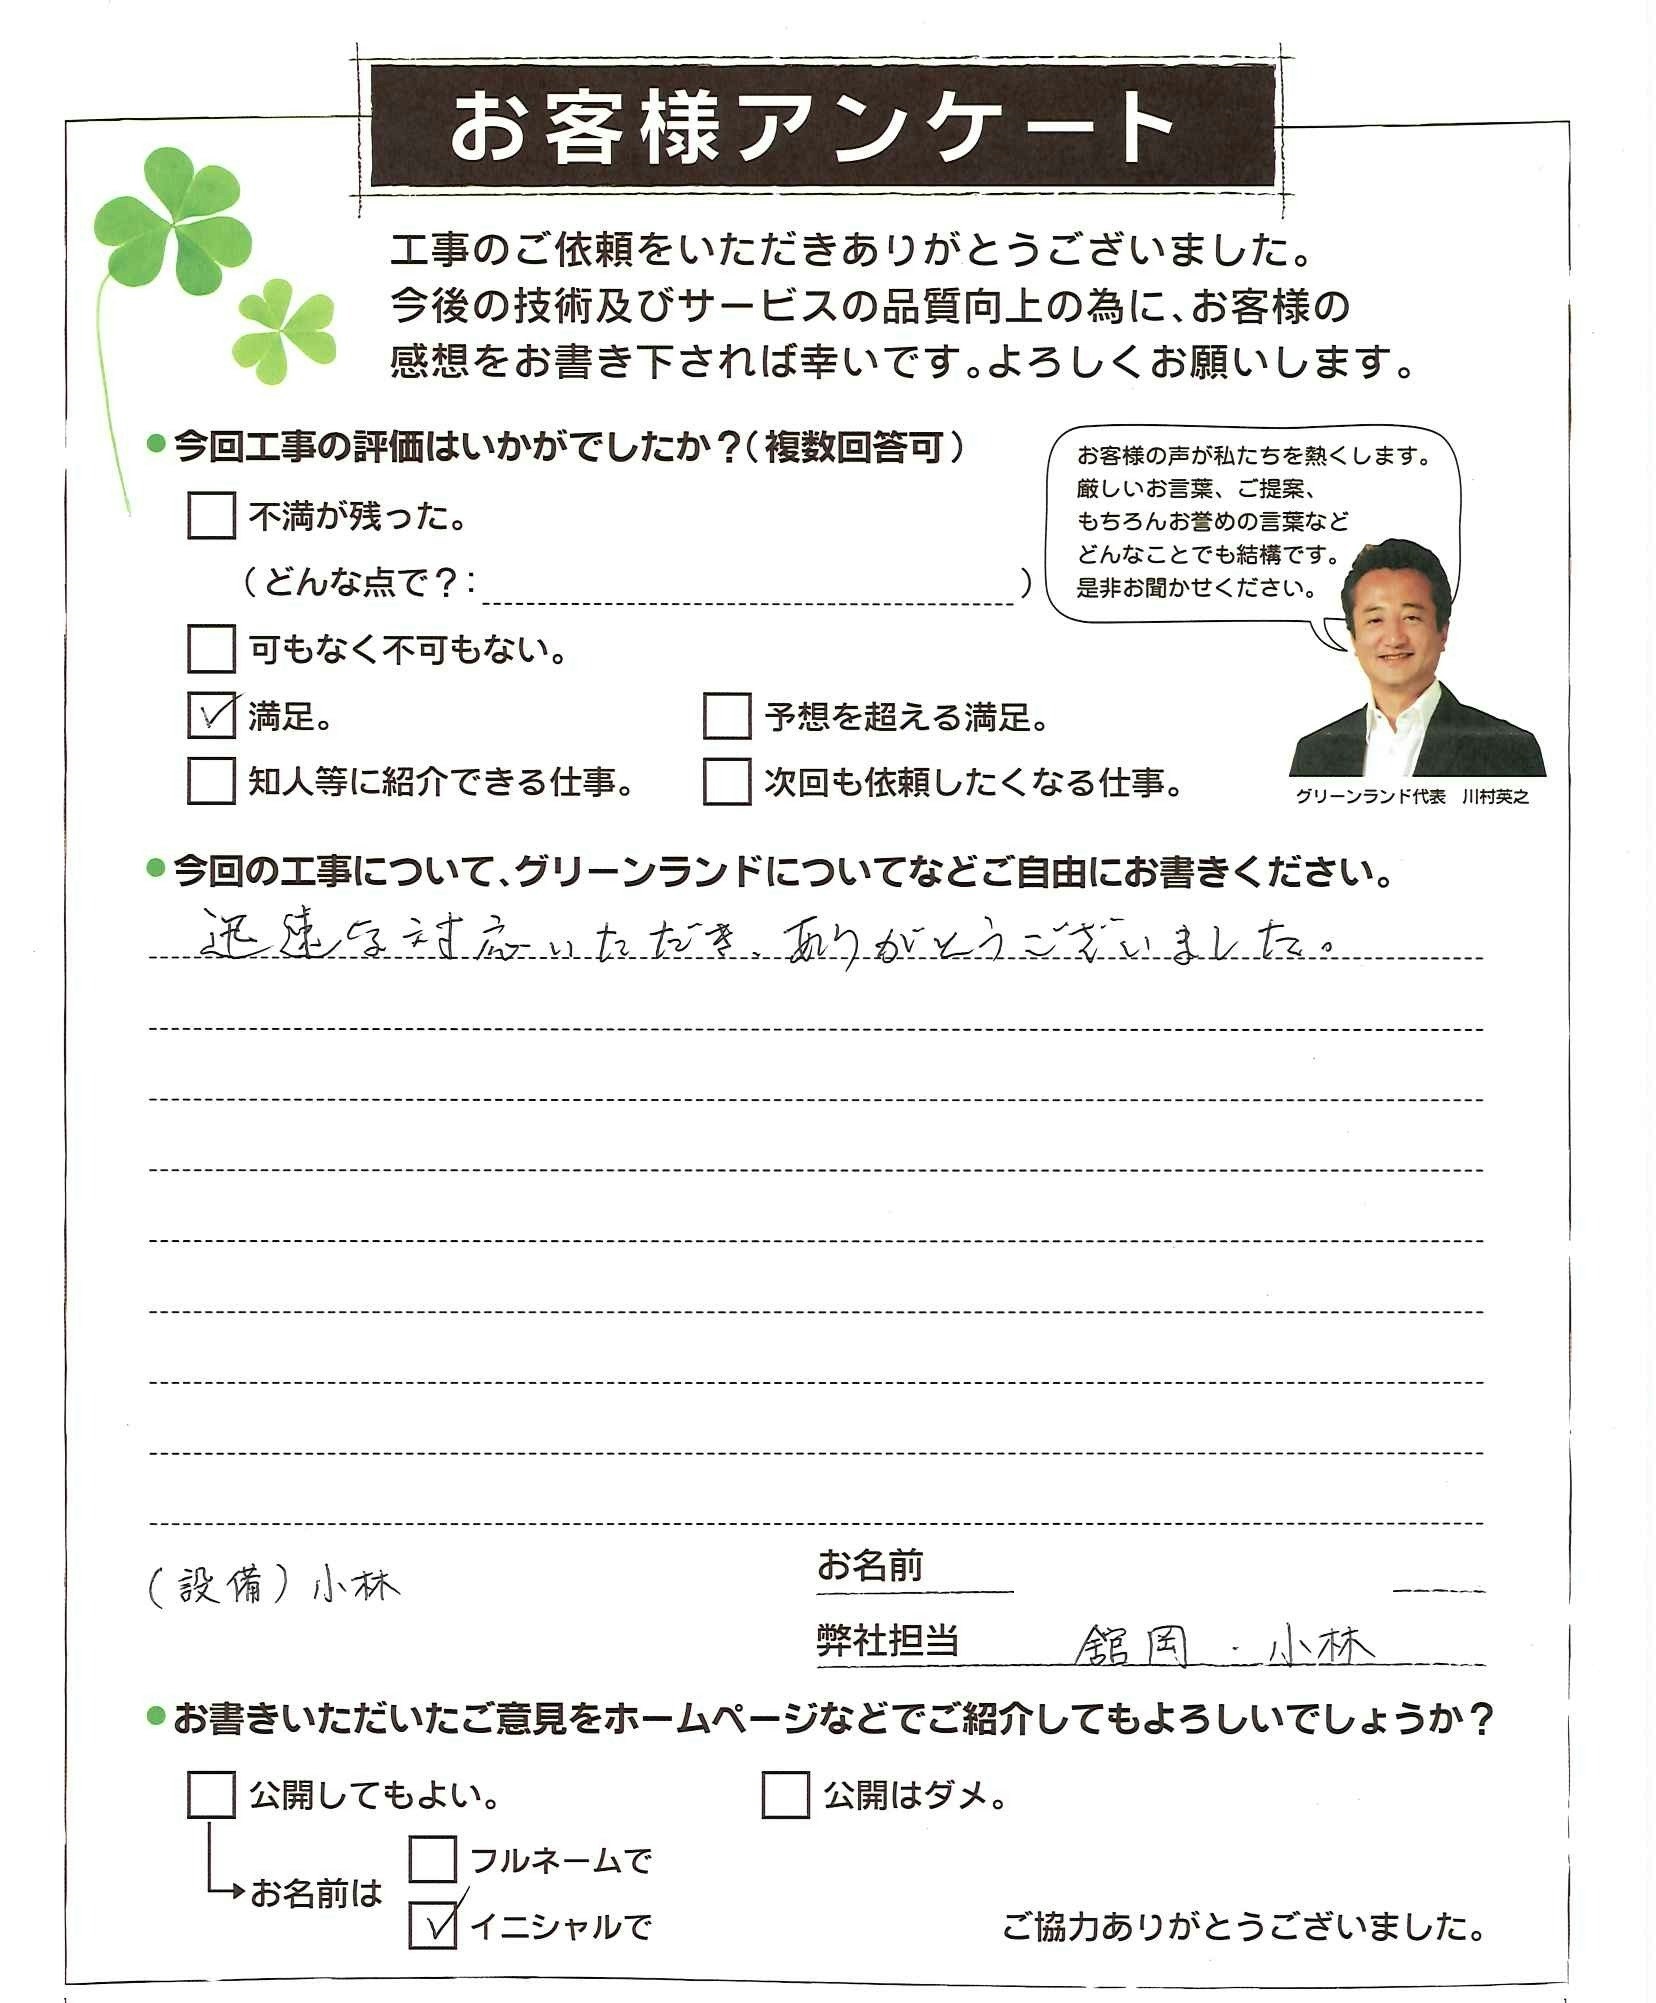 お客様アンケート
工事のご依頼をいただきありがとうございました。
今後の技術及びサービスの品質向上の為に、お客様の
感想をお書き下されば幸いです。よろしくお願いします。
●今回工事の評価はいかがでしたか？（複数回答可）
不満が残った。
（どんな点で？： ）
可もなく不可もない。
満足。
予想を超える満足。
知人等に紹介できる仕事。
次回も依頼したくなる仕事。
お客様の声が私たちを熱くします。
厳しいお言葉、ご提案、
もちろんお誉めの言葉など
どんなことでも結構です。
是非お聞かせください。
グリーンランド代表　川村英之
●今回の工事について、グリーンランドについてなどご自由にお書きください。
迅速な対応いただき、ありがとうございました。
（設備）小林
お名前
弊社担当　舘岡・小林
●お書きいただいたご意見をホームページなどでご紹介してもよろしいでしょうか？
公開してもよい。
公開はダメ。
お名前は
フルネームで
イニシャルで
ご協力ありがとうございました。